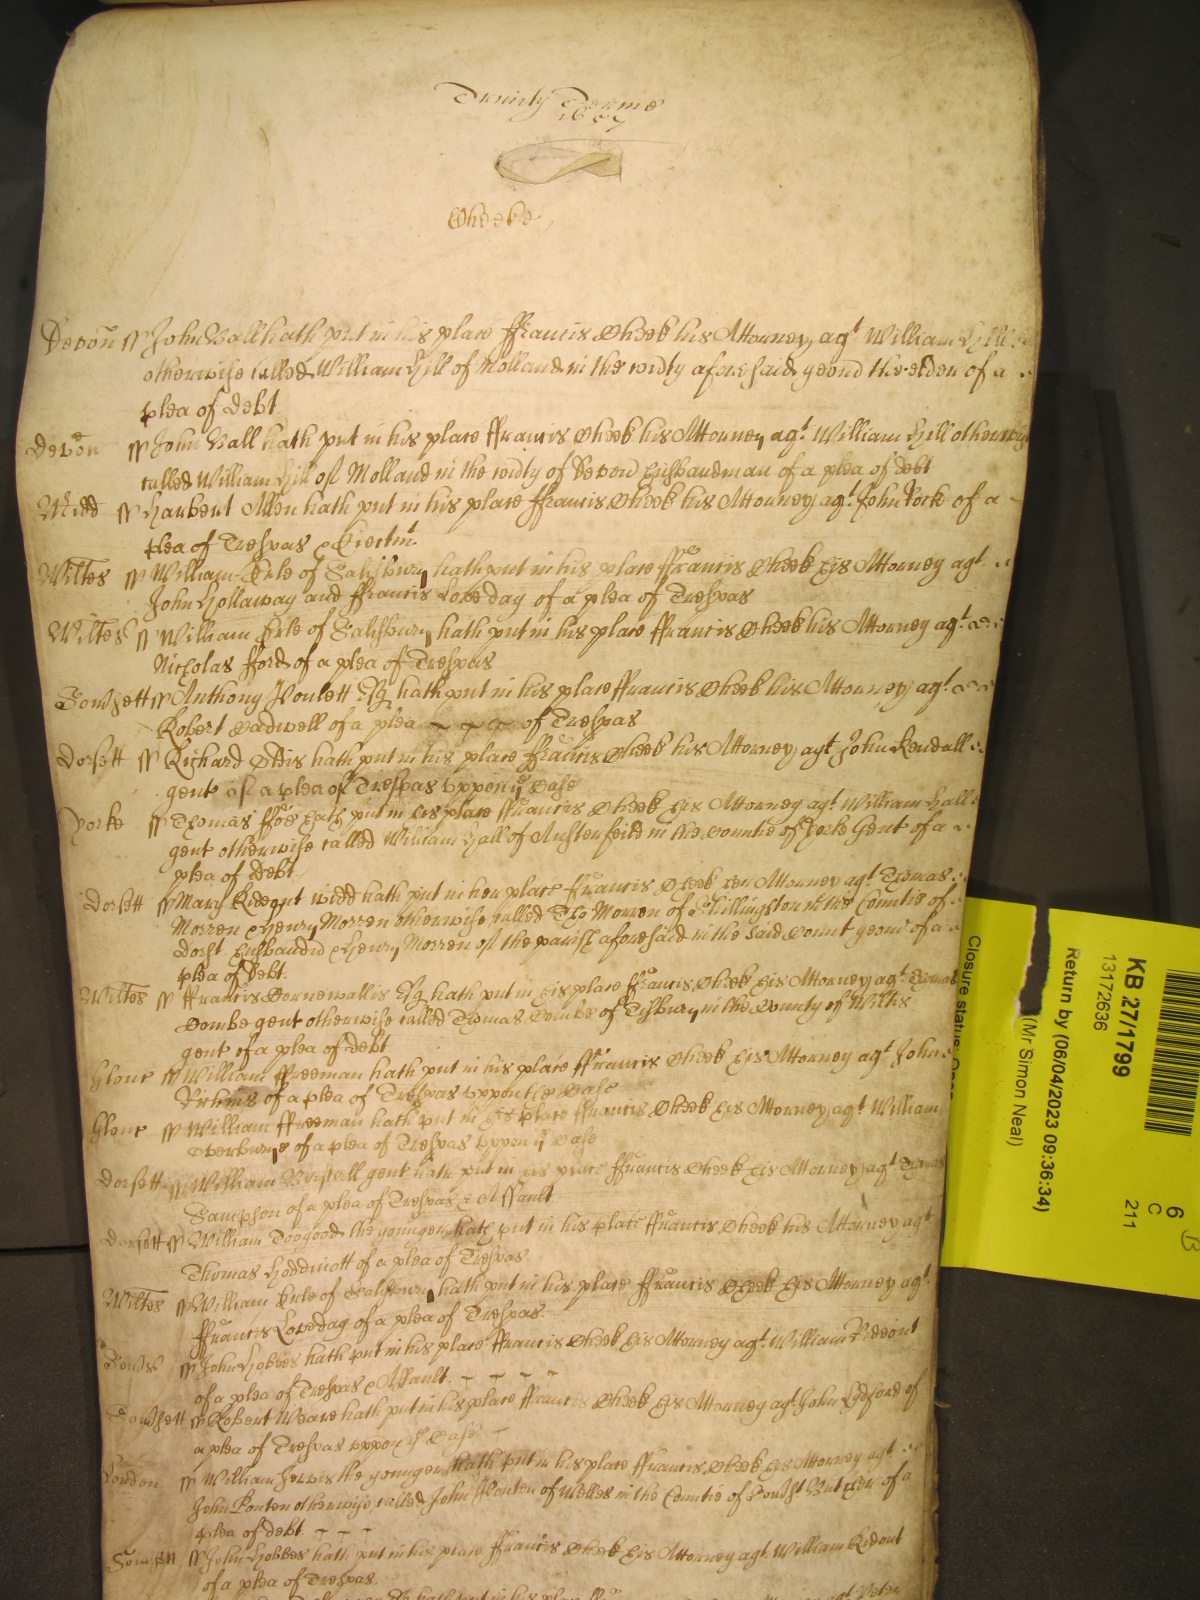 Trinity Terme
1657
Cheeke
Devon ss John Ball hath put in his place ffrancis Cheek his Attorney agt William Hill
otherwise called William Hill of Molland in the County aforesaid yeom the elder of a
plea of debt
Devon ss John Ball hath put in his place ffrancis Cheek his Attorney agt William Hill otherwise
called William Hill of Molland in the County of Devon husbandman of a plea of debt
Midd ss Allen hath put in his place ffrancis Cheek his Attorney agt John York of a
plea of Trespas & Eiectmt
Wiltes ss William Erle of Salisbury hath put in his place ffrancis Cheek his Attorney agt
John Hollaway and ffrancis Loveday of a plea of Trespas
Wiltes ss William Erle of Salisbury hath put in his place ffrancis Cheek his Attorney agt
Nicholas fford of a plea of Trespas
Somsett ss Anthony Poulett Esq hath put in his place ffrancis Cheek his Attorney agt
Robert Cadwell of a plea of Trespas
Dorsett ss Richard hath put in his place ffrancis Cheek his Attorney agt John Kendall
gent of a plea of Trespas uppon ye Case
Yorke ss Thomas ffoe hath put in his place ffrancis Cheek his Attorney agt William Hall
gent otherwise called William Hall of Austerfeild in the Countie of Yorke Gent of a
plea of Debt
Dorsett ss Mary Rideout widd hath put in her place ffrancis Cheek her Attorney agt Thomas
Morren & Henry Morren otherwise called Tho Morren of Shillingston in the Countie of
Dorst husbandm & Henry Morren of the parish aforesaid in the said Count yeom of a
plea of debt
Wiltes ss ffrancis Cornewallis Esq hath put in his place ffrancis Cheek his Attorney agt Thomas
Combe gent otherwise called Thomas Combe of Tisbury in the County of Wiltes
gent of a plea of debt
Glouc ss William ffreeman hath put in his place ffrancis Cheek his Attorney agt John
of a plea of Trespas uppon the Case
Glouc ss William ffreeman hath put in his place ffrancis Cheek his Attorney agt William
Overburye of a plea of Trespas uppon ye Case
Dorsett ss William gent hath put in his place ffrancis Cheek his Attorney agt Thomas
Sampson of a plea of Trespas & Assault
Dorsett ss William Toogood the younger hath put in his place ffrancis Cheek his Attorney agt
Thomas Hoddinott of a plea of Trespas
Wiltes ss William Erle of Salisbury hath put in his place ffrancis Cheek his Attorney agt
ffrancis Loveday of a plea of Trespas
Somst ss John Hobbes hath put in his place ffrancis Cheek his Attorney agt William Rideout
of a plea of Trespas & Assault
Somsett ss Robert Weare hath put in his place ffrancis Cheek his Attorney agt John Lydford of
a plea of Trespas uppon ye Case
London ss William the younger hath put in his place ffrancis Cheek his Attorney agt
John Ponten otherwise called John Ponten of Welles in the Countie of Somst Butcher of a
plea of debt
ss John Hobbes hath put in his place ffrancis Cheek his Attorney agt William Ridout
of a plea of Trespas
hath put in his place agt Peter
KB 27/1799
13172636
Return by (06/04/2023 09:36:34)
(Mr Simon Neal)
Closure status: Open
6
C
211